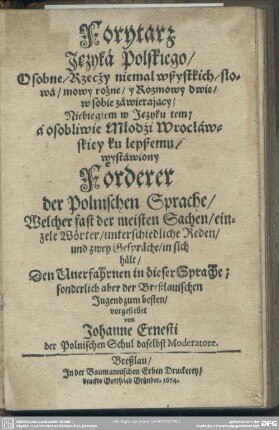 Forytarz
Języká Polskiego/
Osobne/Rzeczy niemal wszystkich/sło-
wá/mowy rożne/ y Rozmowy dwie/
w sobie záwierający/
Niebiegłem w Języku tem;
á osobliwie Młodzi Wrocláw-
skiey ku lepszemu/
wystáwiony
Förderer
der Polnischen Sprache/
Welcher fast der meisten Sachen/ein-
zele Wörter/unterschiedliche Reden/
und zwey Gespräche/in sich
hält/
Den Unerfahrnen in dieser Sprache;
sonderlich aber der Breßlauischen
Jugend zum besten/
vorgestellet
von
Johanne Ernesti
der Polnischen Schul daselbst Moderatore.
Breßlau/
In der Baumannischen Erben Druckerey/
druckts Gottfried Gründer. 1674.